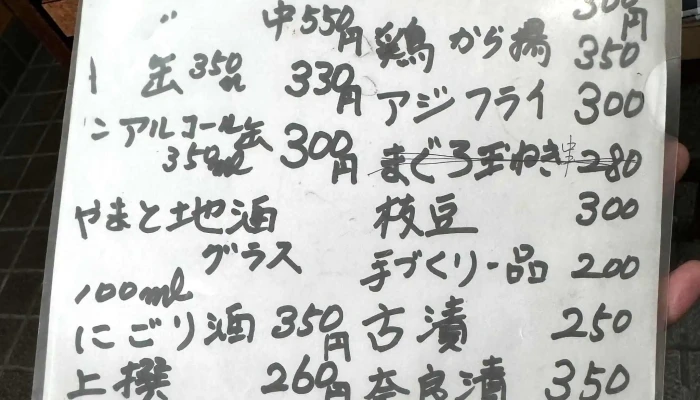 〃 中550円
缶350ml 330円
ンアルコール缶
350ml 300円
やまと地酒
グラス
100ml
にごり酒 350円
上撰 260円
300円
鶏から揚 350
アジフライ 300
まぐろ玉ねぎ串 280
枝豆 300
手づくり一品 200
古漬 250
奈良漬 350